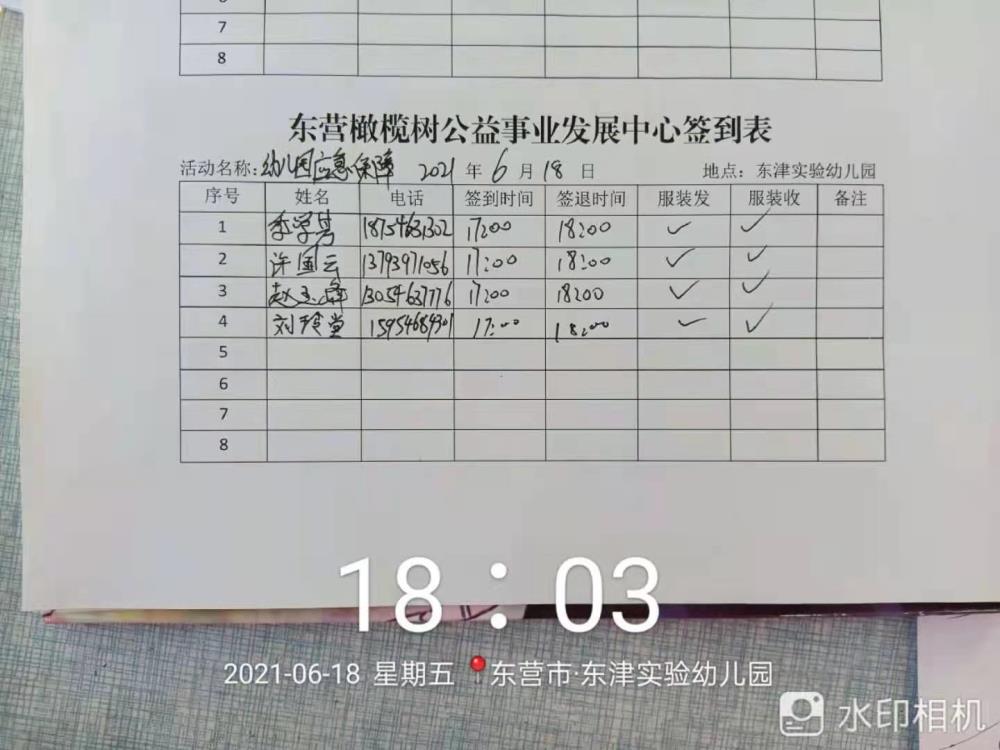 7
8
东营橄榄树公益事业发展中心签到表
活动名称:幼儿园应急保障 2021 年 6 月 18 日 地点:东津实验幼儿园
序号 姓名 电话 签到时间 签退时间 服装发 服装收 备注
1 18754631302 17:00 18:00 ✓ ✓
2 许国云 13793971056 17:00 18:00 ✓ ✓
3 13054637776 17:00 18:00 ✓ ✓
4 刘玲堂 15954689301 17:00 18:00 ✓ ✓
5
6
7
8
18:03
2021-06-18 星期五 东营市·东津实验幼儿园
水印相机